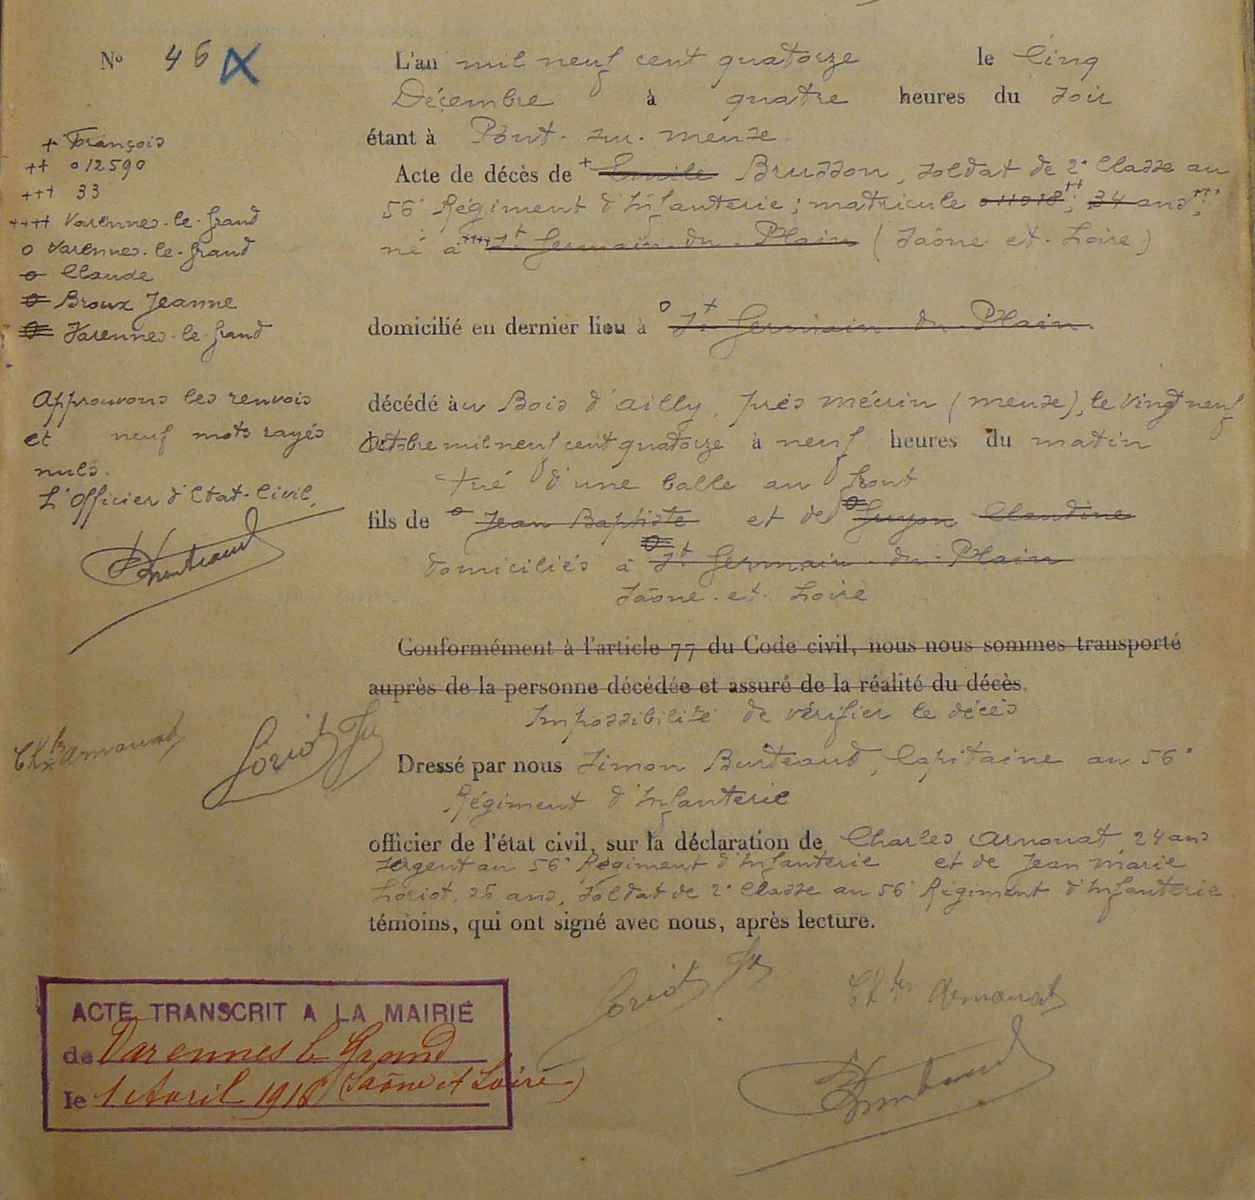 N° 46
L'an mil neuf cent quatorze le Cinq
Décembre à quatre heures du soir
étant à Pont-sur-Meuse.
+ François
++ 012590
+++ 33
++++ Varennes-le-Grand
o Varennes-le-Grand
o Claude
o Broux Jeanne
o Varennes-le-Grand
Approuvons les renvois
et neuf mots rayés
nuls.
L'Officier d'Etat-Civil,
Acte de décès de + Emile Brusson, soldat de 2e Classe au
56e Régiment d'Infanterie; matricule 011018 ++; 34 ans +++;
né à ++++ St Germain-du-Plain (Saône-et-Loire)
domicilié en dernier lieu à o St Germain-du-Plain.
décédé au Bois d'Ailly, près Mécrin (Meuse), le vingt neuf
Octobre mil neuf cent quatorze à neuf heures du matin
tué d'une balle au front
fils de o Jean Baptiste et de o Guyon Claudine
domiciliés à o St Germain-du-Plain
Saône-et-Loire
Conformément à l'article 77 du Code civil, nous nous sommes transporté
auprès de la personne décédée et assuré de la réalité du décès.
Impossibilité de vérifier le décès
Chles Arnouat Loriot JM
Dressé par nous Simon Burteaud, Capitaine au 56e
Régiment d'Infanterie
officier de l'état civil, sur la déclaration de Charles Arnouat, 24 ans
Sergent au 56e Régiment d'Infanterie et de Jean Marie
Loriot, 26 ans, Soldat de 2e Classe au 56e Régiment d'Infanterie.
témoins, qui ont signé avec nous, après lecture.
Loriot JM Chles Arnouat
ACTE TRANSCRIT A LA MAIRIE
de Varennes le Grand
le 1 Avril 1916 (Saône et Loire)